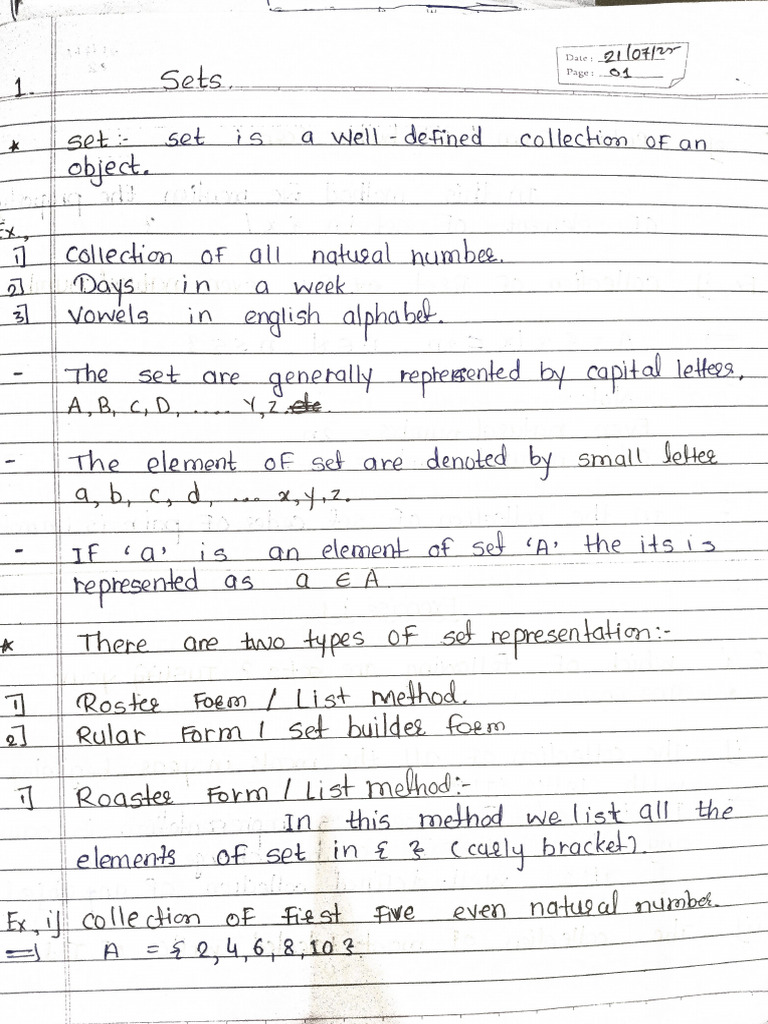 Date: 21/07/25
Page: 01
1. Sets.
* set:- set is a well-defined collection of an
object.
Ex,
1] collection of all natural number.
2] Days in a week.
3] vowels in english alphabet.
- The set are generally represented by capital letters,
A, B, C, D, ..... Y, Z. etc
- The element of set are denoted by small letter
a, b, c, d, .... x, y, z.
- If 'a' is an element of set 'A' the its is
represented as a ∈ A
* There are two types of set representation:-
1] Roster Form / List method.
2] Rular Form / set builder form
1] Roaster Form / List method:-
In this method we list all the
elements of set in { } (curly bracket).
Ex, i] collection of first five even natural number.
=> A = { 2, 4, 6, 8, 10 }.